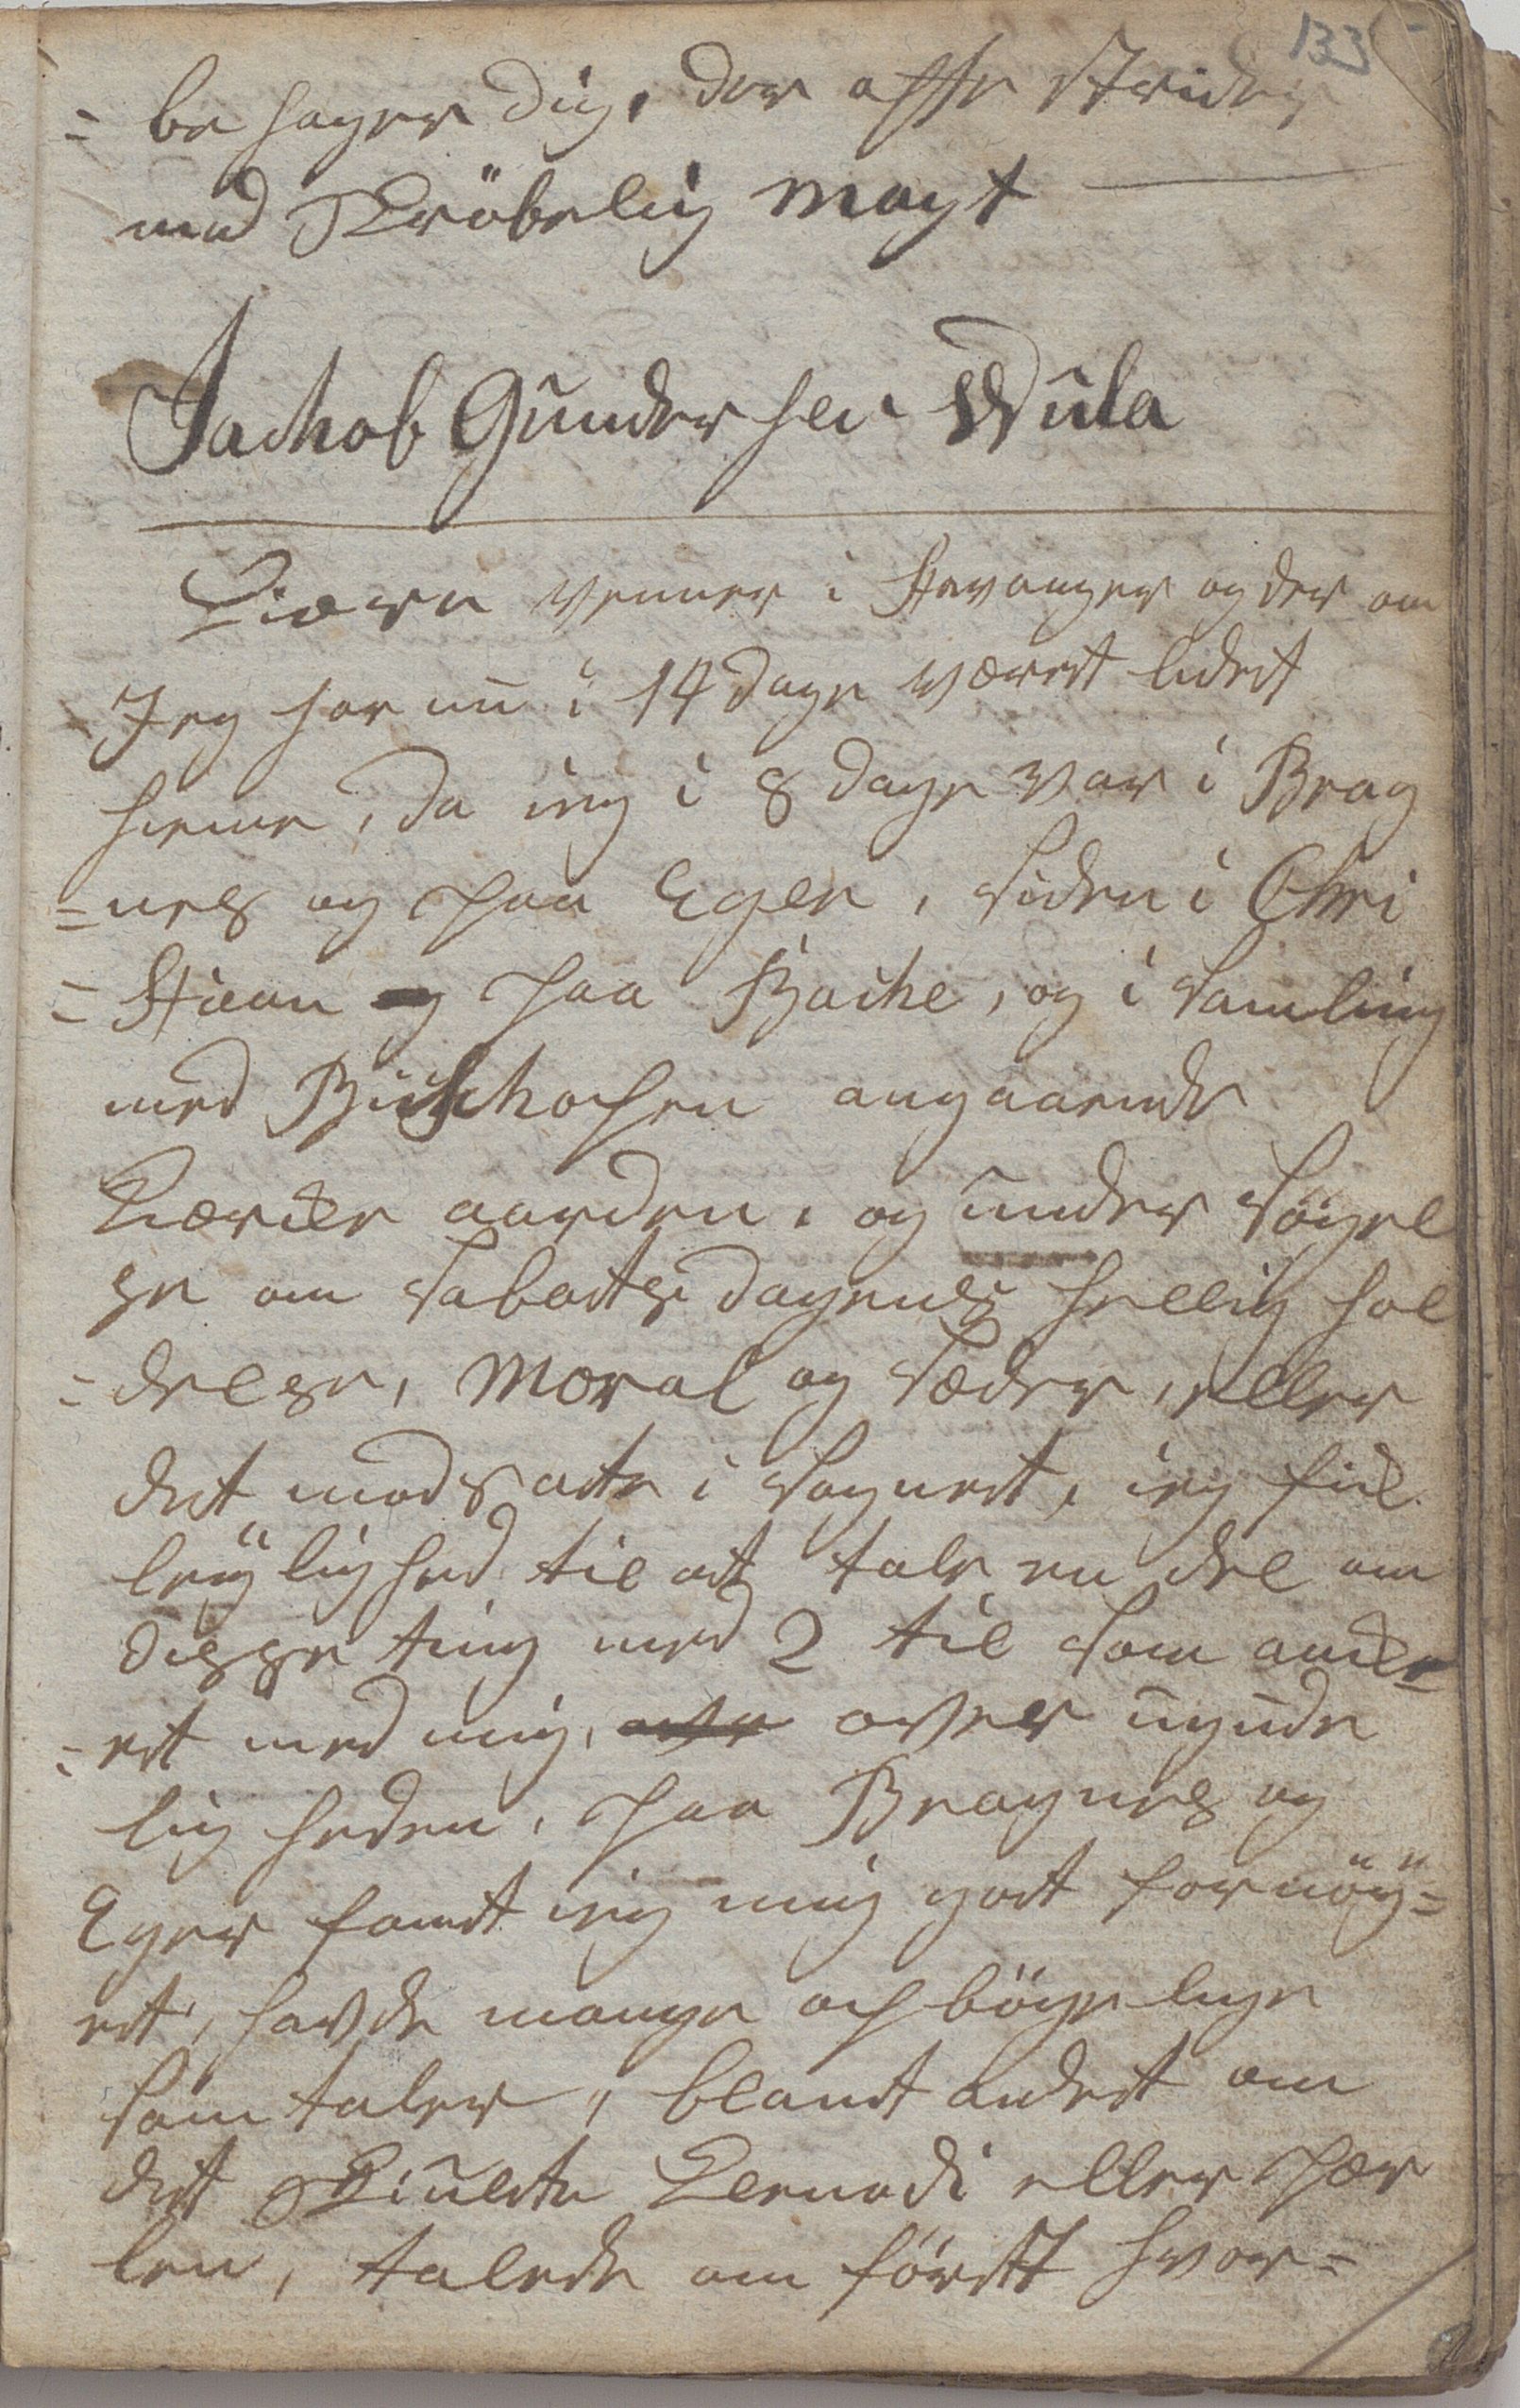 133
= be hager dig, der ofte strider
med Skröbelig magt
Jachob Gunder sen Wula
Kiære venner i Stavanger og der om
Jeg har nu i 14 dage været lidet
hieme, da ieg i 8 dage var i Brag
= nes og paa Eger, siden i Chri
= stian og paa Bache, og i samling
med Bischopen angaaende
Kierke aarden, og under søgel
se om sabatsdagenes hellig hol
= delse, Moral og sæder, eller
det mod satte i Sognet, ieg fik
leylighed til at tale en del om
disse ting med 2 til som arider
= et med mig, over ugude
lig heden, paa Bragnes og
Eger fant ieg mig got fornöy=
et, havde mange opbögelige
sam taler, blant andet om
det skiulte Klenodi eller pær
len, talede om först hvor=